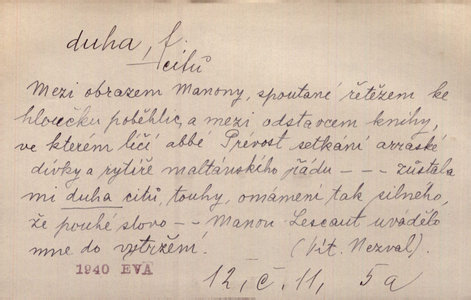 duha, f.
citů
Mezi obrazem Manony, spoutané řetězem ke
hloučku poběhlic, a mezi odstavcem knihy,
ve kterém líčí abbé Prévost setkání arraské
dívky a rytíře maltánského řádu --- zůstala
mi duha citů, touhy, omámení tak silného,
že pouhé slovo -- Manon Lescaut uvádělo
mne do vytržení. (Vít. Nezval).
1940 EVA 12, č. 11, 5a